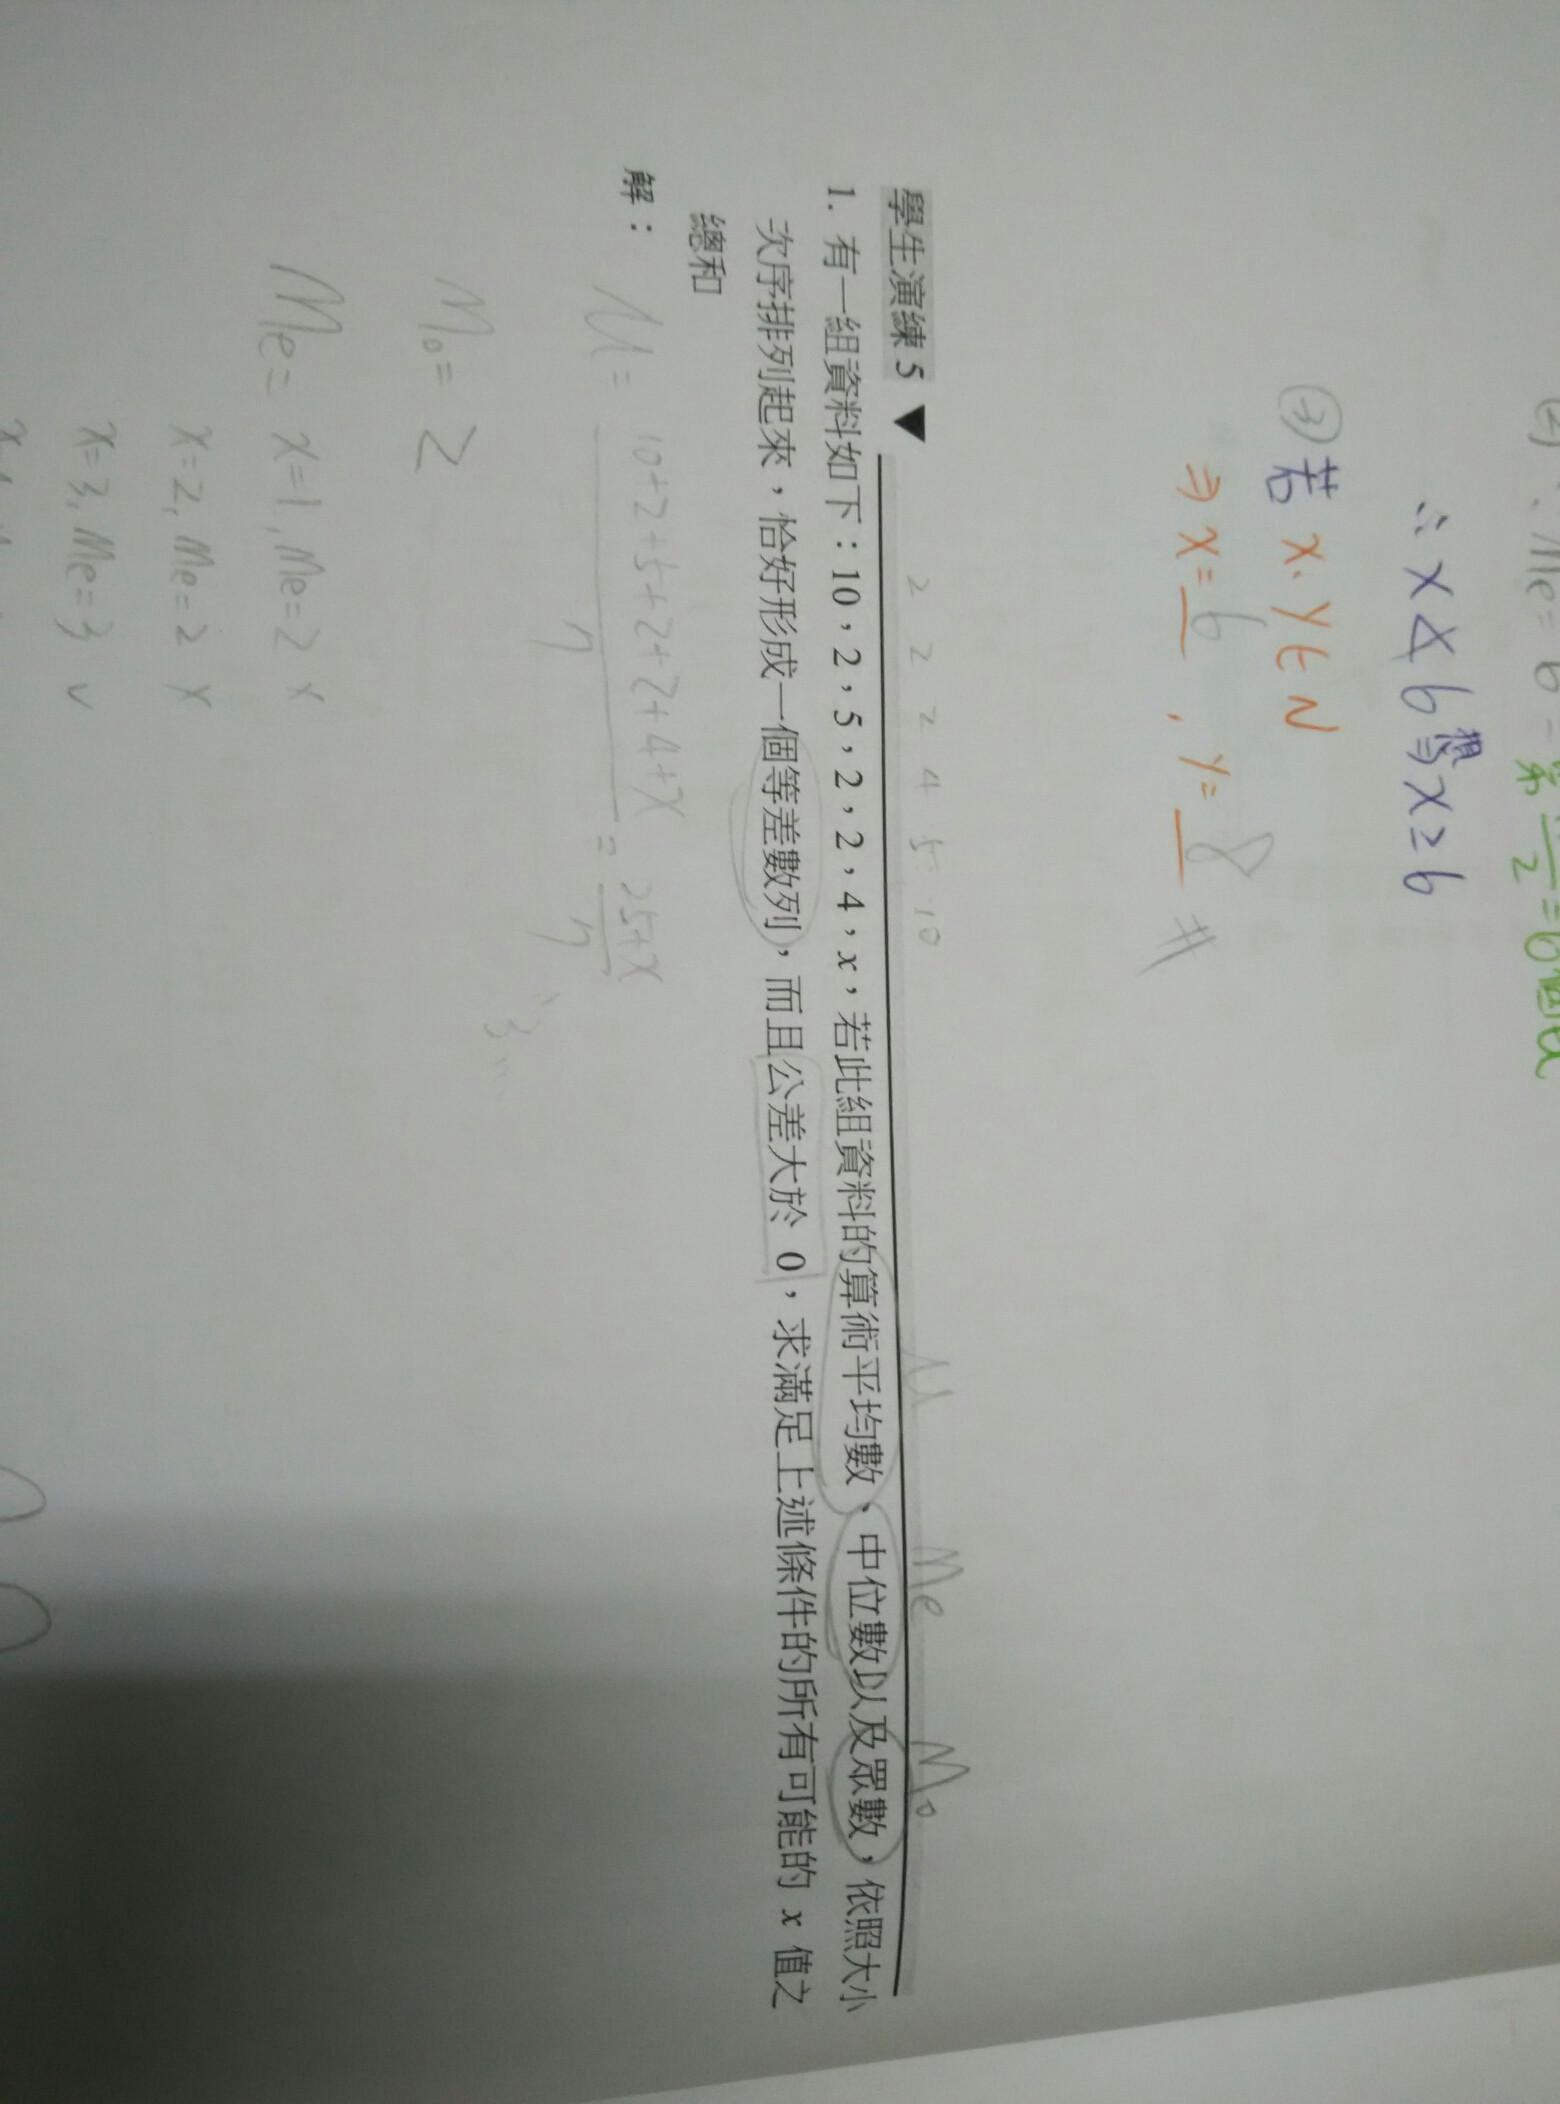 ∴ x ≮ b 猜⇒ x ≥ 6
③ 若 x. y ∈ N
⇒ x = 6 , y = 8 #
2 2 2 4 5 10
M Me Mo
學生演練 5 ▼
1. 有一組資料如下：10，2，5，2，2，4，x，若此組資料的算術平均數、中位數以及眾數，依照大小
次序排列起來，恰好形成一個等差數列，而且公差大於 0，求滿足上述條件的所有可能的 x 值之
總和
解：
M = 10+2+5+2+2+4+x / 7 = 25+x / 7
Mo = 2
Me = x=1, Me=2 x
x=2, Me=2 x
x=3, Me=3 v